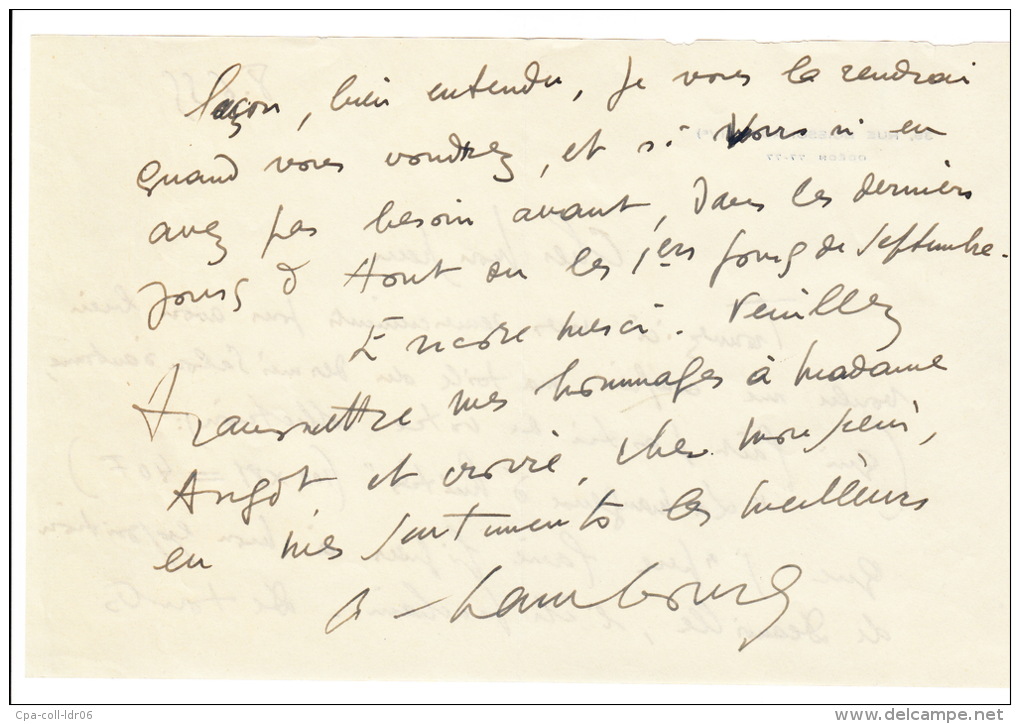 façon, bien entendu, je vous la rendrai
quand vous voudrez, et si vous n'en
avez pas besoin avant, dans les derniers
jours d'Aout ou les 1ers jours de Septembre.
Encore merci. Veuillez
transmettre mes hommages à Madame
Angot et croire, cher Monsieur,
en mes sentiments les meilleurs
A Hambourg
Cpa-coll-ldr06
www.delcampe.net